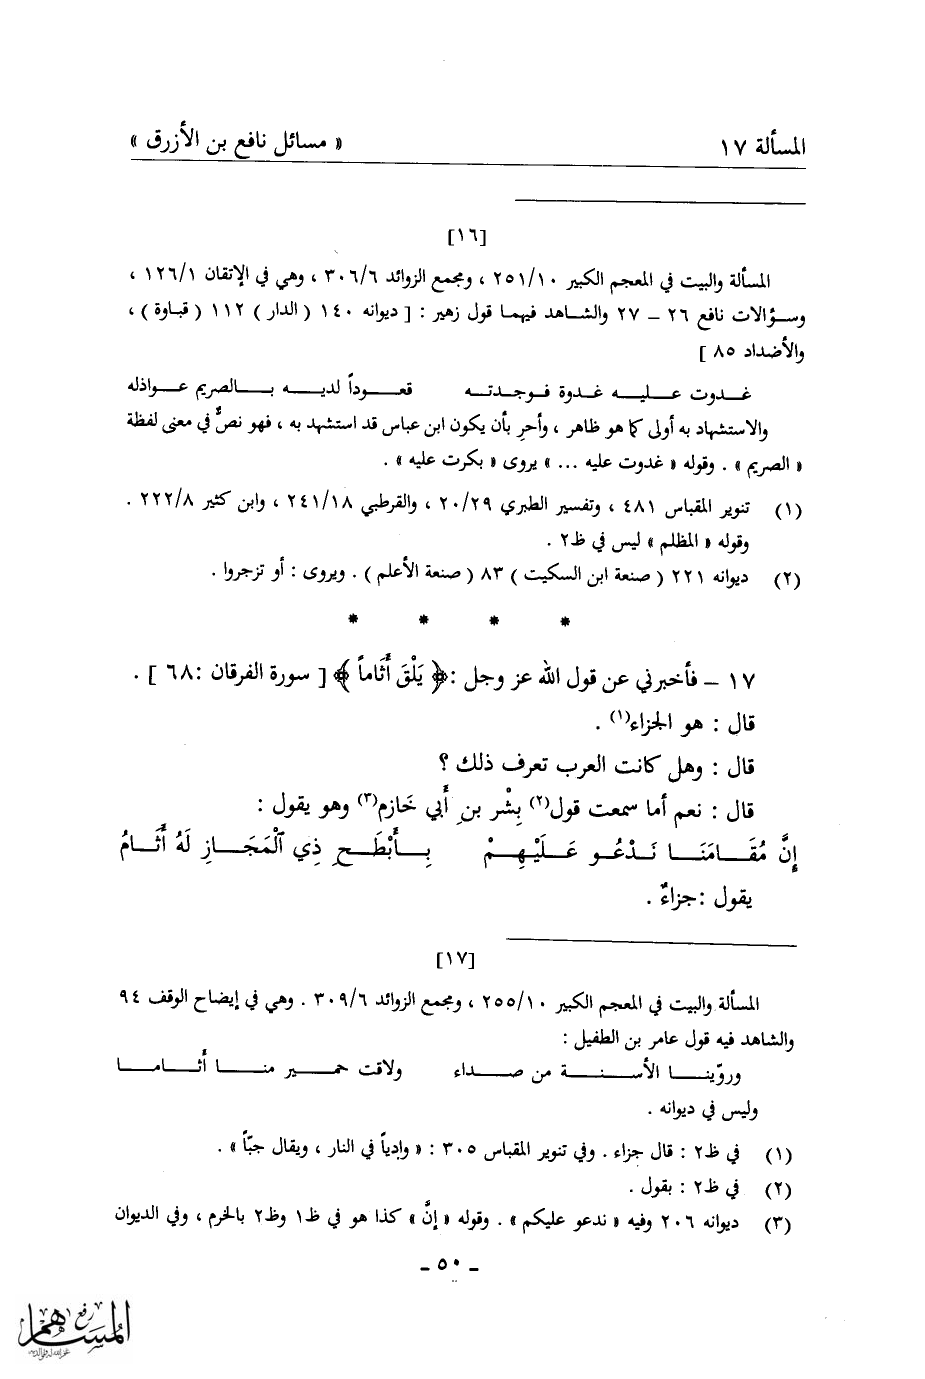 المسألة ١٧ « مسائل نافع بن الأزرق »
[١٦]
المسألة والبيت في المعجم الكبير ٢٥١/١٠ ، ومجمع الزوائد ٣٠٦/٦ ، وهي في الإتقان ١٢٦/١ ،
وسؤالات نافع ٢٦ – ٢٧ والشاهد فيهما قول زهير : [ ديوانه ١٤٠ ( الدار ) ١١٢ ( قباوة ) ،
والأضداد ٨٥ ]
غدوت عليه غدوة فوجدته قعوداً لديه بالصريم عواذله
والاستشهاد به أولى كما هو ظاهر ، وأحرِ بأن يكون ابن عباس قد استشهد به ، فهو نصٌّ في معنى لفظة
« الصريم » . وقوله « غدوت عليه ... » يروى « بكرت عليه » .
(١) تنوير المقباس ٤٨١ ، وتفسير الطبري ٢٠/٢٩ ، والقرطبي ٢٤١/١٨ ، وابن كثير ٢٢٢/٨ .
وقوله « المظلم » ليس في ظ٢ .
(٢) ديوانه ٢٢١ ( صنعة ابن السكيت ) ٨٣ ( صنعة الأعلم ) . ويروى : أو تزجروا .
* * * *
١٧ – فأخبرني عن قول الله عز وجل : ﴿ يَلْقَ أَثَاماً ﴾ [ سورة الفرقان : ٦٨ ] .
قال : هو الجزاء(١) .
قال : وهل كانت العرب تعرف ذلك ؟
قال : نعم أما سمعت قول(٢) بِشْر بنِ أَبي خَازم(٣) وهو يقول :
إِنَّ مُقَامَنَا نَدْعُو عَلَيْهِمْ بِأَبْطَحِ ذِي الْمَجَازِ لَهُ أَثَامُ
يقول : جزاءٌ .
[١٧]
المسألة والبيت في المعجم الكبير ٢٥٥/١٠ ، ومجمع الزوائد ٣٠٩/٦ . وهي في إيضاح الوقف ٩٤
والشاهد فيه قول عامر بن الطفيل :
وروّينا الأسنة من صداء ولاقت حمير منا أَثاما
وليس في ديوانه .
(١) في ظ٢ : قال جزاء . وفي تنوير المقباس ٣٠٥ : « وادياً في النار ، ويقال جبّاً » .
(٢) في ظ٢ : بقول .
(٣) ديوانه ٢٠٦ وفيه « ندعو عليكم » . وقوله « إنَّ » كذا هو في ظ١ وظ٢ بالخرم ، وفي الديوان
- ٥٠ -
رفع
المساهم